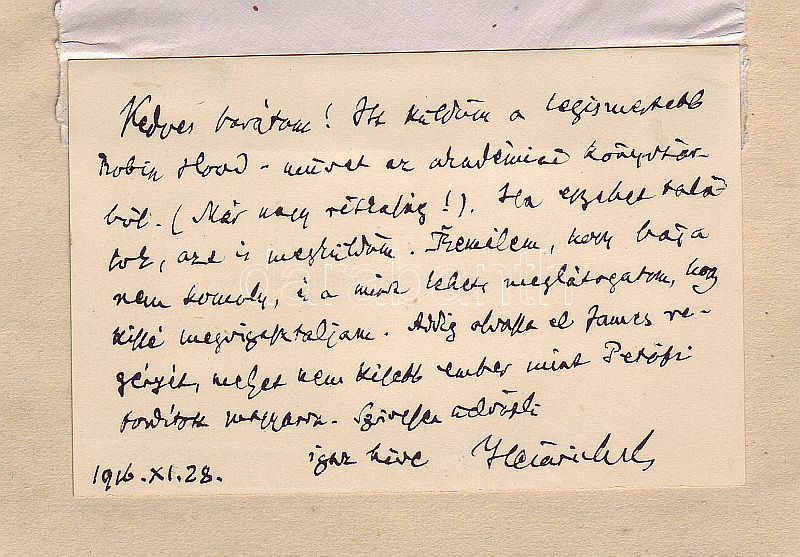 Kedves barátom! Itt küldöm a legismertebb
Robin Hood-művet az akadémiai könyvtár-
ból. (Már nagy ritkaság!). Ha egyebet talá-
lok, azt is megküldöm. Remélem, hogy baja
nem komoly, s a mint lehet, meglátogatom, hogy
kissé megvigasztaljam. Addig olvassa el James re-
gényét, melyet nem kisebb ember mint Petőfi
fordított magyarra. Szívesen üdvözli
igaz híve Heinrich
1916. XI. 28.
darabanth